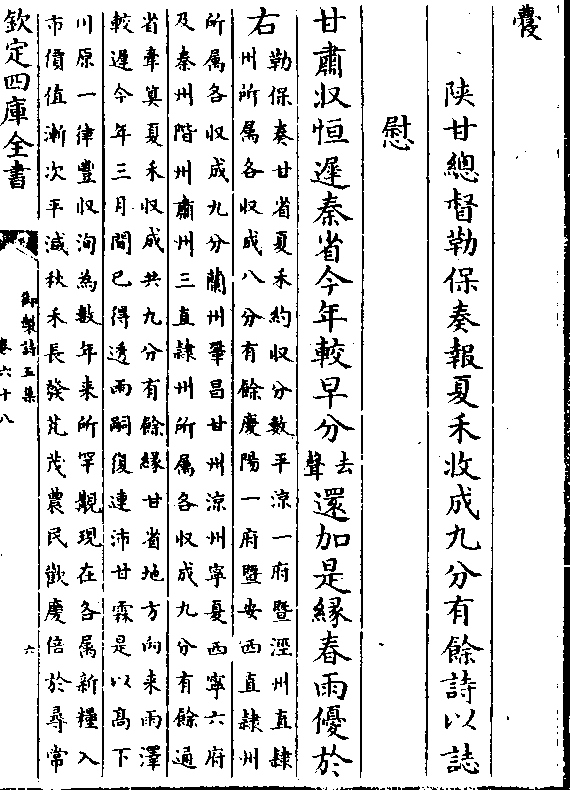 陝甘總督勒保奏報夏禾收成九分有餘詩以誌
慰
甘肅収恒遲秦省今年較早分去聲還加是緣春雨優於
右勒保奏甘省夏禾約収分數平涼一府暨涇州直隸
州所属各収成八分有餘慶陽一府暨安西直隸州
所属各収成九分蘭州鞏昌甘州涼州寧夏西寧六府
及秦州階州肅州三直隸州所属各収成九分有餘通
省牽算夏禾収成共九分有餘緣甘省地方向来雨澤
較遲今年三月間已得透雨嗣復連沛甘霖是以髙下
川原一律豐収洵為數年来所罕覯現在各属新糧入
市價值漸次平減秋禾長發芃茂農民歡慶倍於尋常
欽定四庫全書
御製詩五集
卷六十八
六